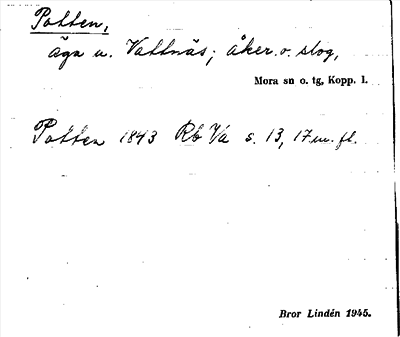 Potten,
äga u. Vattnäs; åker. o. skog,
Mora sn o. tg, Kopp. l.
Potten 1843 Rb Va s. 13, 17 m. fl.
Bror Lindén 1945.